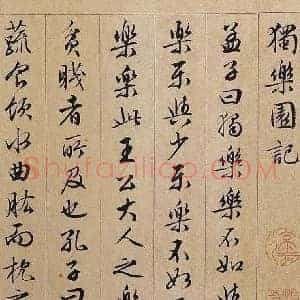 獨樂園記
孟子曰獨樂樂不如
樂樂與少樂樂不如
樂樂此王公大人之樂
貧賤者所及也孔子曰
蔬食飲水曲肱而枕之
Shufaziliao.com